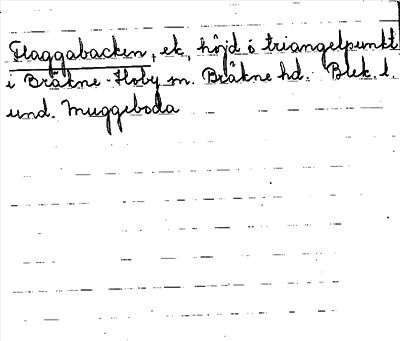 Flaggabacken, ek, höjd ö triangelpunkt
i Bräkne-Hoby sn. Bräkne hd. Blek. l.
und. Muggeboda